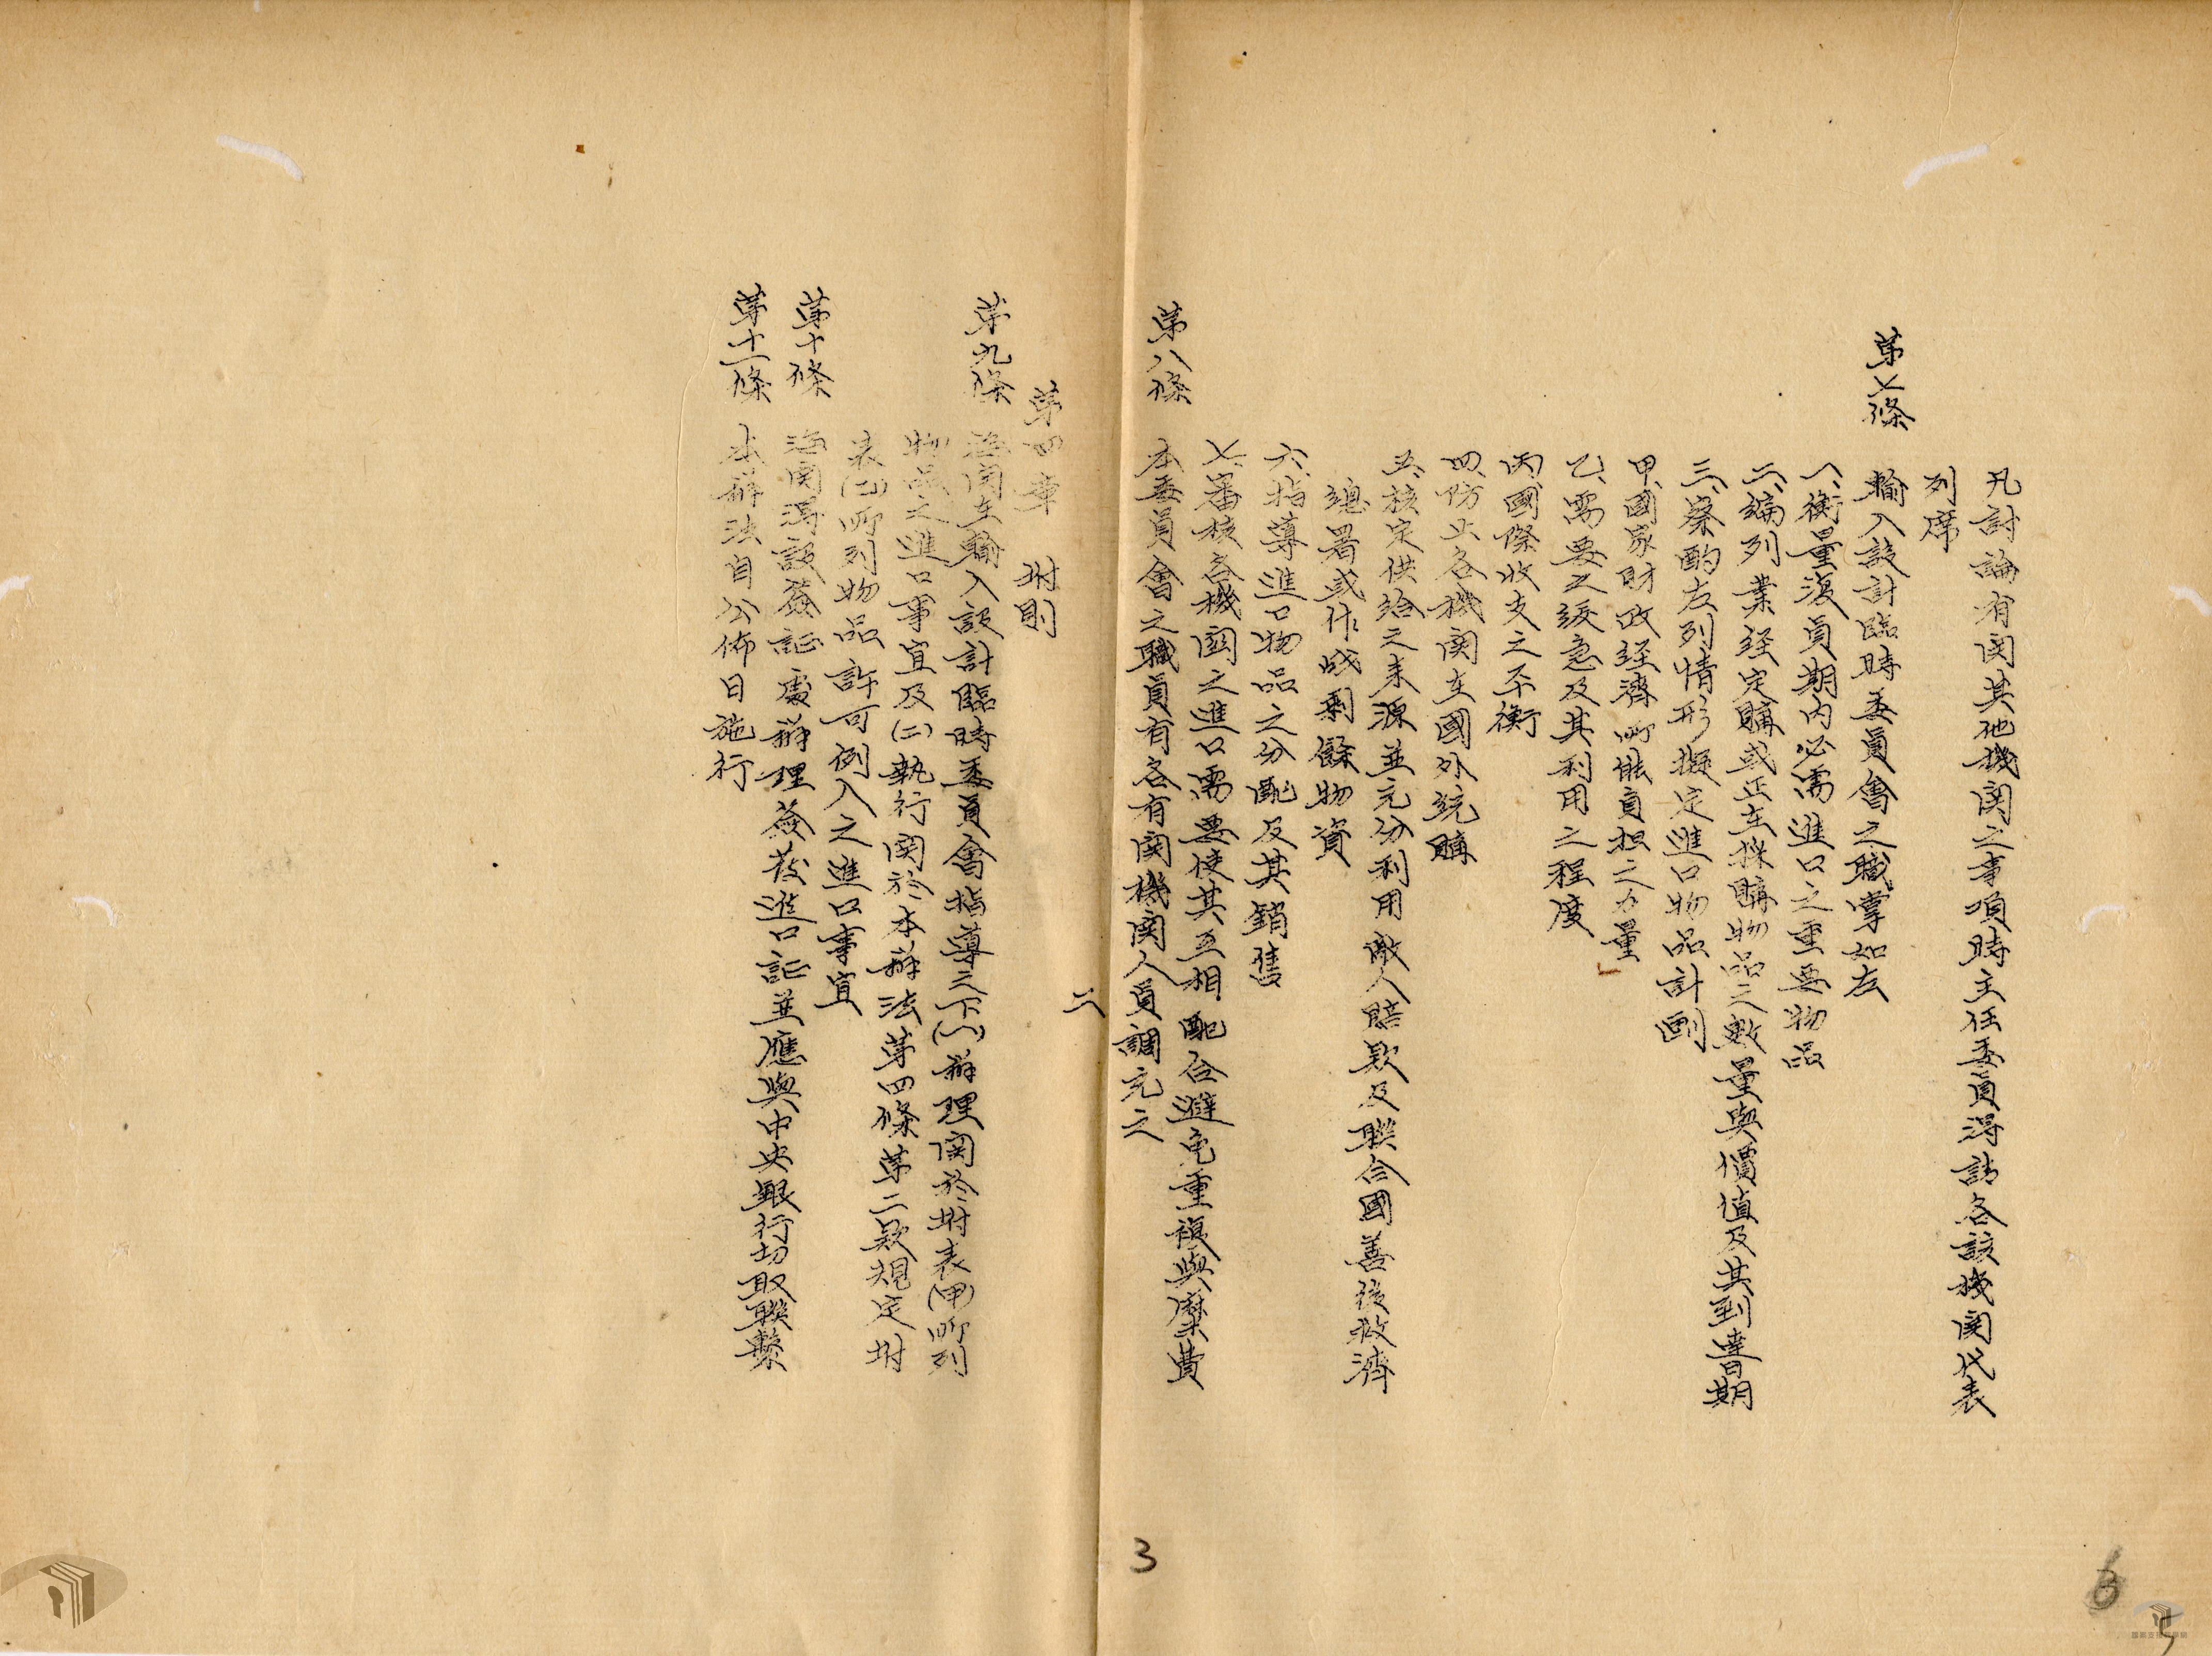 凡討論有関其他機関之事項時主任委員得請各該機関代表
列席
第七條　輸入設計臨時委員會之職掌如左
一、衡量復員期内必需進口之重要物品
二、編列業經定購或正在採購物品之數量與價值及其到達日期
三、察酌左列情形擬定進口物品計劃
甲、國家財政經濟所能負担之力量
乙、需要之緩急及其利用之程度
丙、國際收支之平衡
四、防止各機関在國外競購
五、核定供給之來源並充分利用敵人賠款及聯合國善後救濟
總署或作戰剩餘物資
六、指導進口物品之分配及其銷售
七、審核各機関之進口需要使其互相配合避免重複與糜費
第八條　本委員會之職員有各有関機関人員調充之
二
第四章　附則
第九條　海関在輸入設計臨時委員會指導之下(一)辦理関於附表(甲)所列
物品之進口事宜及(二)執行関於本辦法第四條第二款規定附
表(乙)所列物品許可例入之進口事宜
第十條　海関得設簽証處辦理簽發進口証並應與中央銀行切取聯繫
第十一條　本辦法自公佈日施行
3